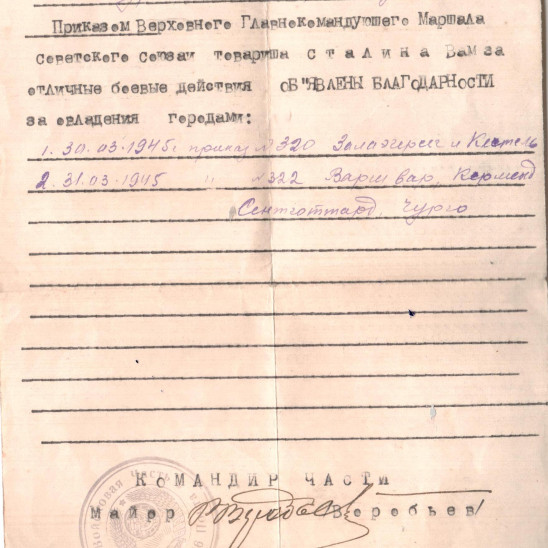 Приказом Верховного Главнокомандующего Маршала
Советского Союзаи товарища СТАЛИНА Вам за
отличные боевые действия ОБ"ЯВЛЕНЫ БЛАГОДАРНОСТИ
за овладения городами:
1. 30.03-1945г приказ №320 Залаэгерсег и Кестель
2. 31.03-1945 " №322 Вашвар, Керменд
Сентготтард, Чурго
КОМАНДИР ЧАСТИ
Майор Воробьев/
Войсковая часть